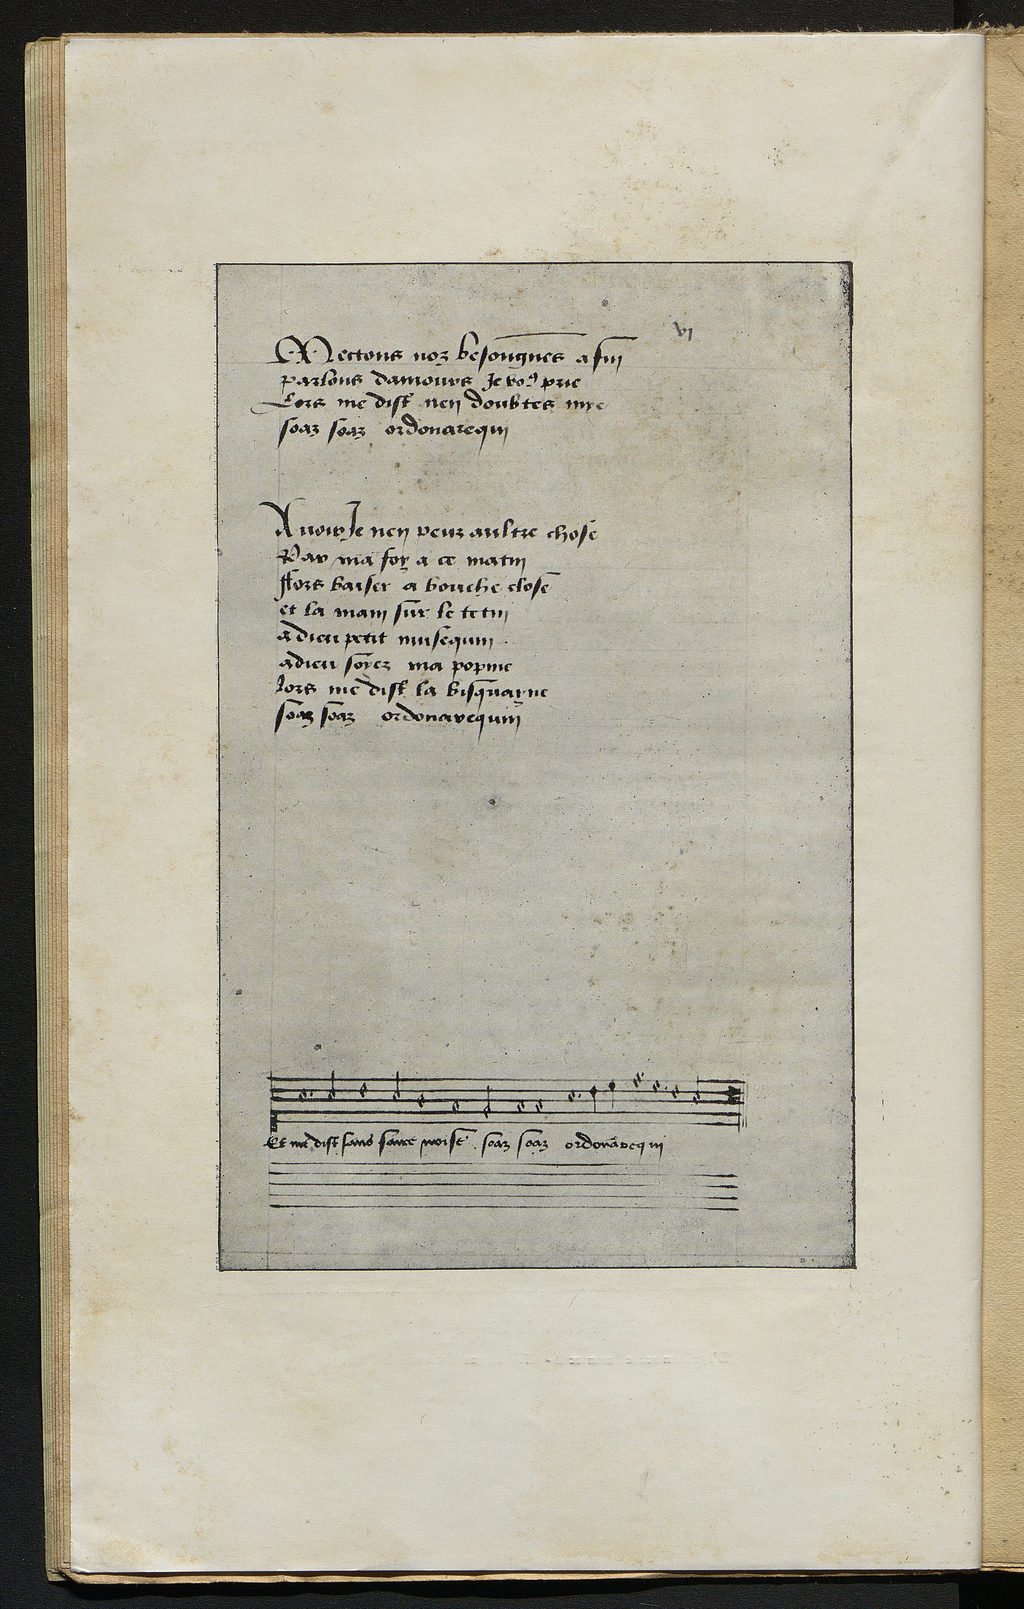 vi
Mectons noz besongnes a fin
parlons damours Je voꝰ prie
Lors me dist nen doubtes mye
soaz soaz ordonarequin
Avoir Je nen peuz aultre chose
Par ma foy a ce matin
ffors baiser a bouche close
et la main sur le tetin
adieu petit musequin
adieu soyez ma popine
lors me dist la bisquayne
soaz soaz ordonarequin
Et me dist sans faire noise soaz soaz ordonārequin